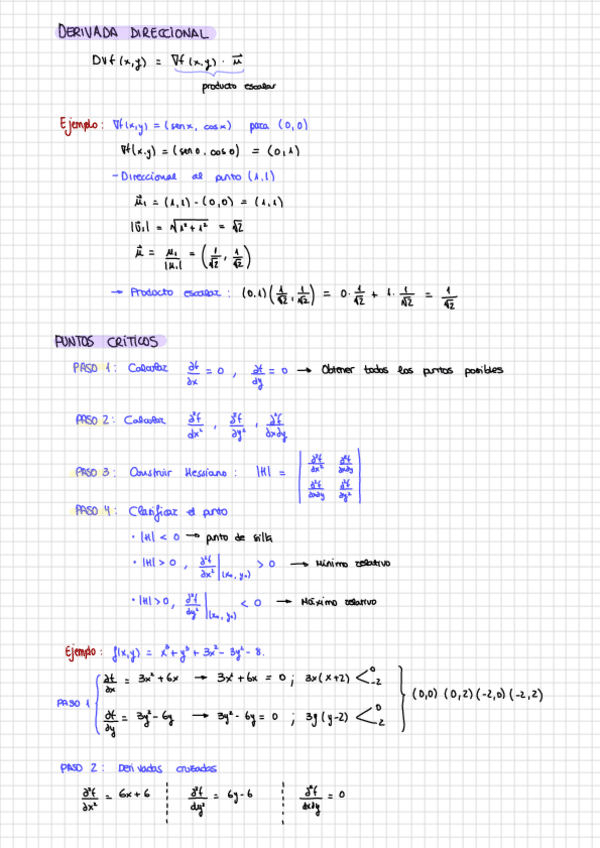 DERIVADA DIRECCIONAL
Dvf(x,y) = ∇f(x,y) · μ⃗
producto escalar
Ejemplo: ∇f(x,y) = (sen x, cos x) para (0,0)
∇f(x,y) = (sen 0, cos 0) = (0,1)
- Direccional al punto (1,1)
μ⃗₁ = (1,1) - (0,0) = (1,1)
|v⃗₁| = √(1² + 1²) = √2
μ⃗ = μ₁/|μ₁| = (1/√2, 1/√2)
→ Producto escalar: (0,1)(1/√2, 1/√2) = 0·1/√2 + 1·1/√2 = 1/√2
PUNTOS CRÍTICOS
PASO 1: Calcular ∂f/∂x = 0, ∂f/∂y = 0 → Obtener todos los puntos posibles
PASO 2: Calcular ∂²f/∂x², ∂²f/∂y², ∂²f/∂x∂y
PASO 3: Construir Hessiano: |H| = | ∂²f/∂x² ∂²f/∂x∂y |
| ∂²f/∂x∂y ∂²f/∂y² |
PASO 4: Clasificar el punto
· |H| < 0 → punto de silla
· |H| > 0, ∂²f/∂x² |(x₀, y₀) > 0 → Mínimo relativo
· |H| > 0, ∂²f/∂y² |(x₀, y₀) < 0 → Máximo relativo
Ejemplo: f(x,y) = x³ + y³ + 3x² - 3y² - 8.
PASO 1 { ∂f/∂x = 3x² + 6x → 3x² + 6x = 0; 3x(x+2) < 0 -2
∂f/∂y = 3y² - 6y → 3y² - 6y = 0; 3y(y-2) < 0 2 } (0,0) (0,2) (-2,0) (-2,2)
PASO 2: Derivadas cruzadas
∂²f/∂x² = 6x + 6 ∂²f/∂y² = 6y - 6 ∂²f/∂x∂y = 0